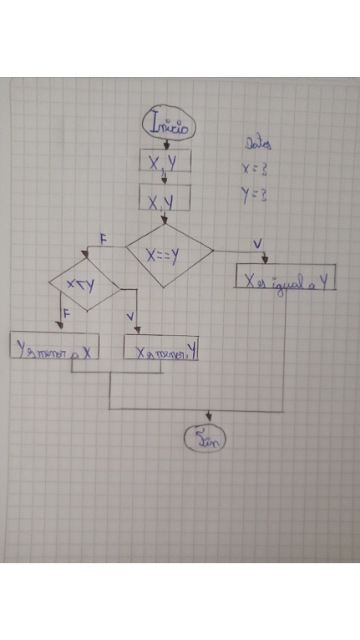 Inicio
Datos
X, Y
X=?
X, Y
Y=?
F
X==Y
V
X<Y
X es igual a Y
F
V
Y es menor a X
X es menor Y
Fin